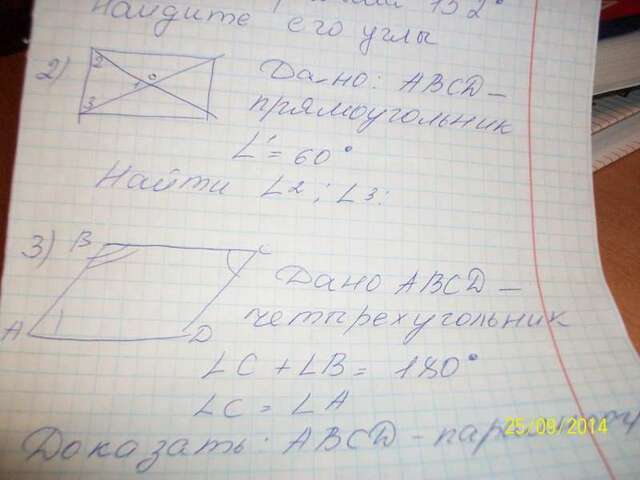 152°
Найдите его углы
2)
2
1
O
3
Дано: ABCD –
прямоугольник
∠1 = 60°
Найти ∠2; ∠3:
3)
B
C
A
D
Дано ABCD –
четырехугольник
∠C + ∠B = 180°
∠C = ∠A
Доказать: ABCD –
25/09/2014